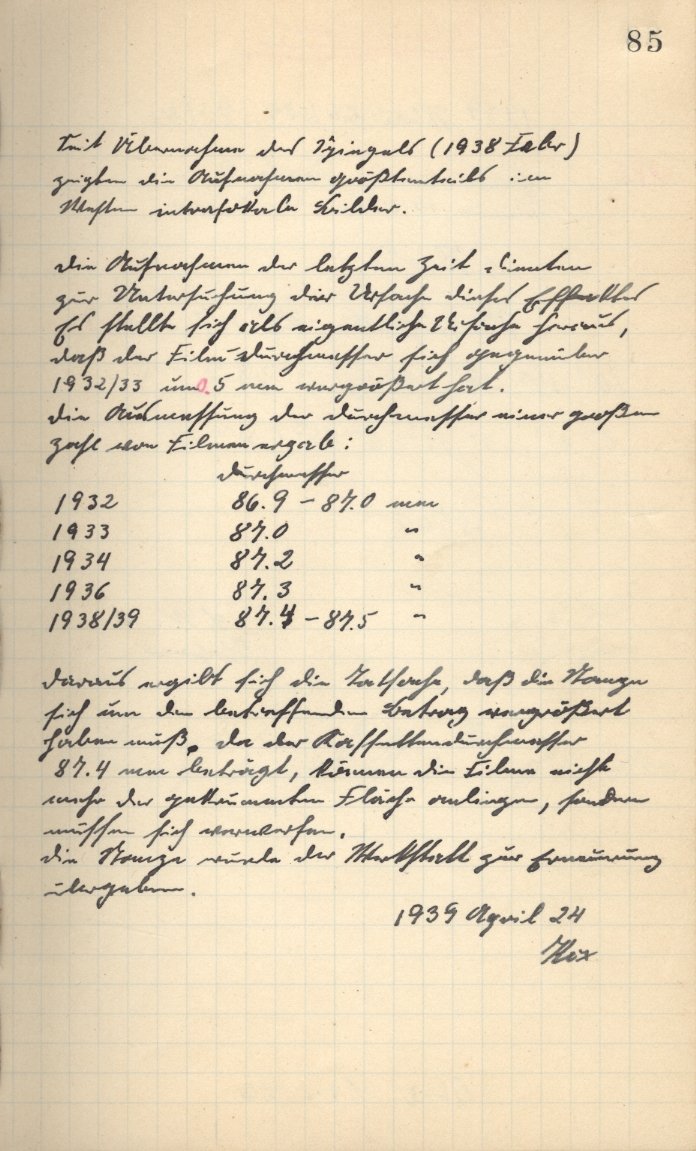 85
Seit Übernahme des Spiegels (1938 Febr)
zeigten die Aufnahmen größtenteils im
Westen intrafokale Bilder.
Die Aufnahmen der letzten Zeit dienten
zur Untersuchung der Ursache dieses Effektes
Es stellte sich als eigentliche Ursache heraus,
daß der Filmdurchmesser sich gegenüber
1932/33 um 0.5 mm vergrößert hat.
Die Ausmessung der Durchmesser einer großen
Zahl von Filmen ergab:
Durchmesser
1932 86.9 – 87.0 mm
1933 87.0 "
1934 87.2 "
1936 87.3 "
1938/39 87.4 – 87.5 "
Daraus ergibt sich die Tatsache, daß die Stanze
sich um den betreffenden Betrag vergrößert
haben muß. Da der Kassettendurchmesser
87.4 mm beträgt, können die Filme nicht
mehr der gekrümmten Fläche anliegen, sondern
müssen sich verwerfen.
Die Stanze wurde der Werkstatt zur Erneuerung
übergeben.
1939 April 24